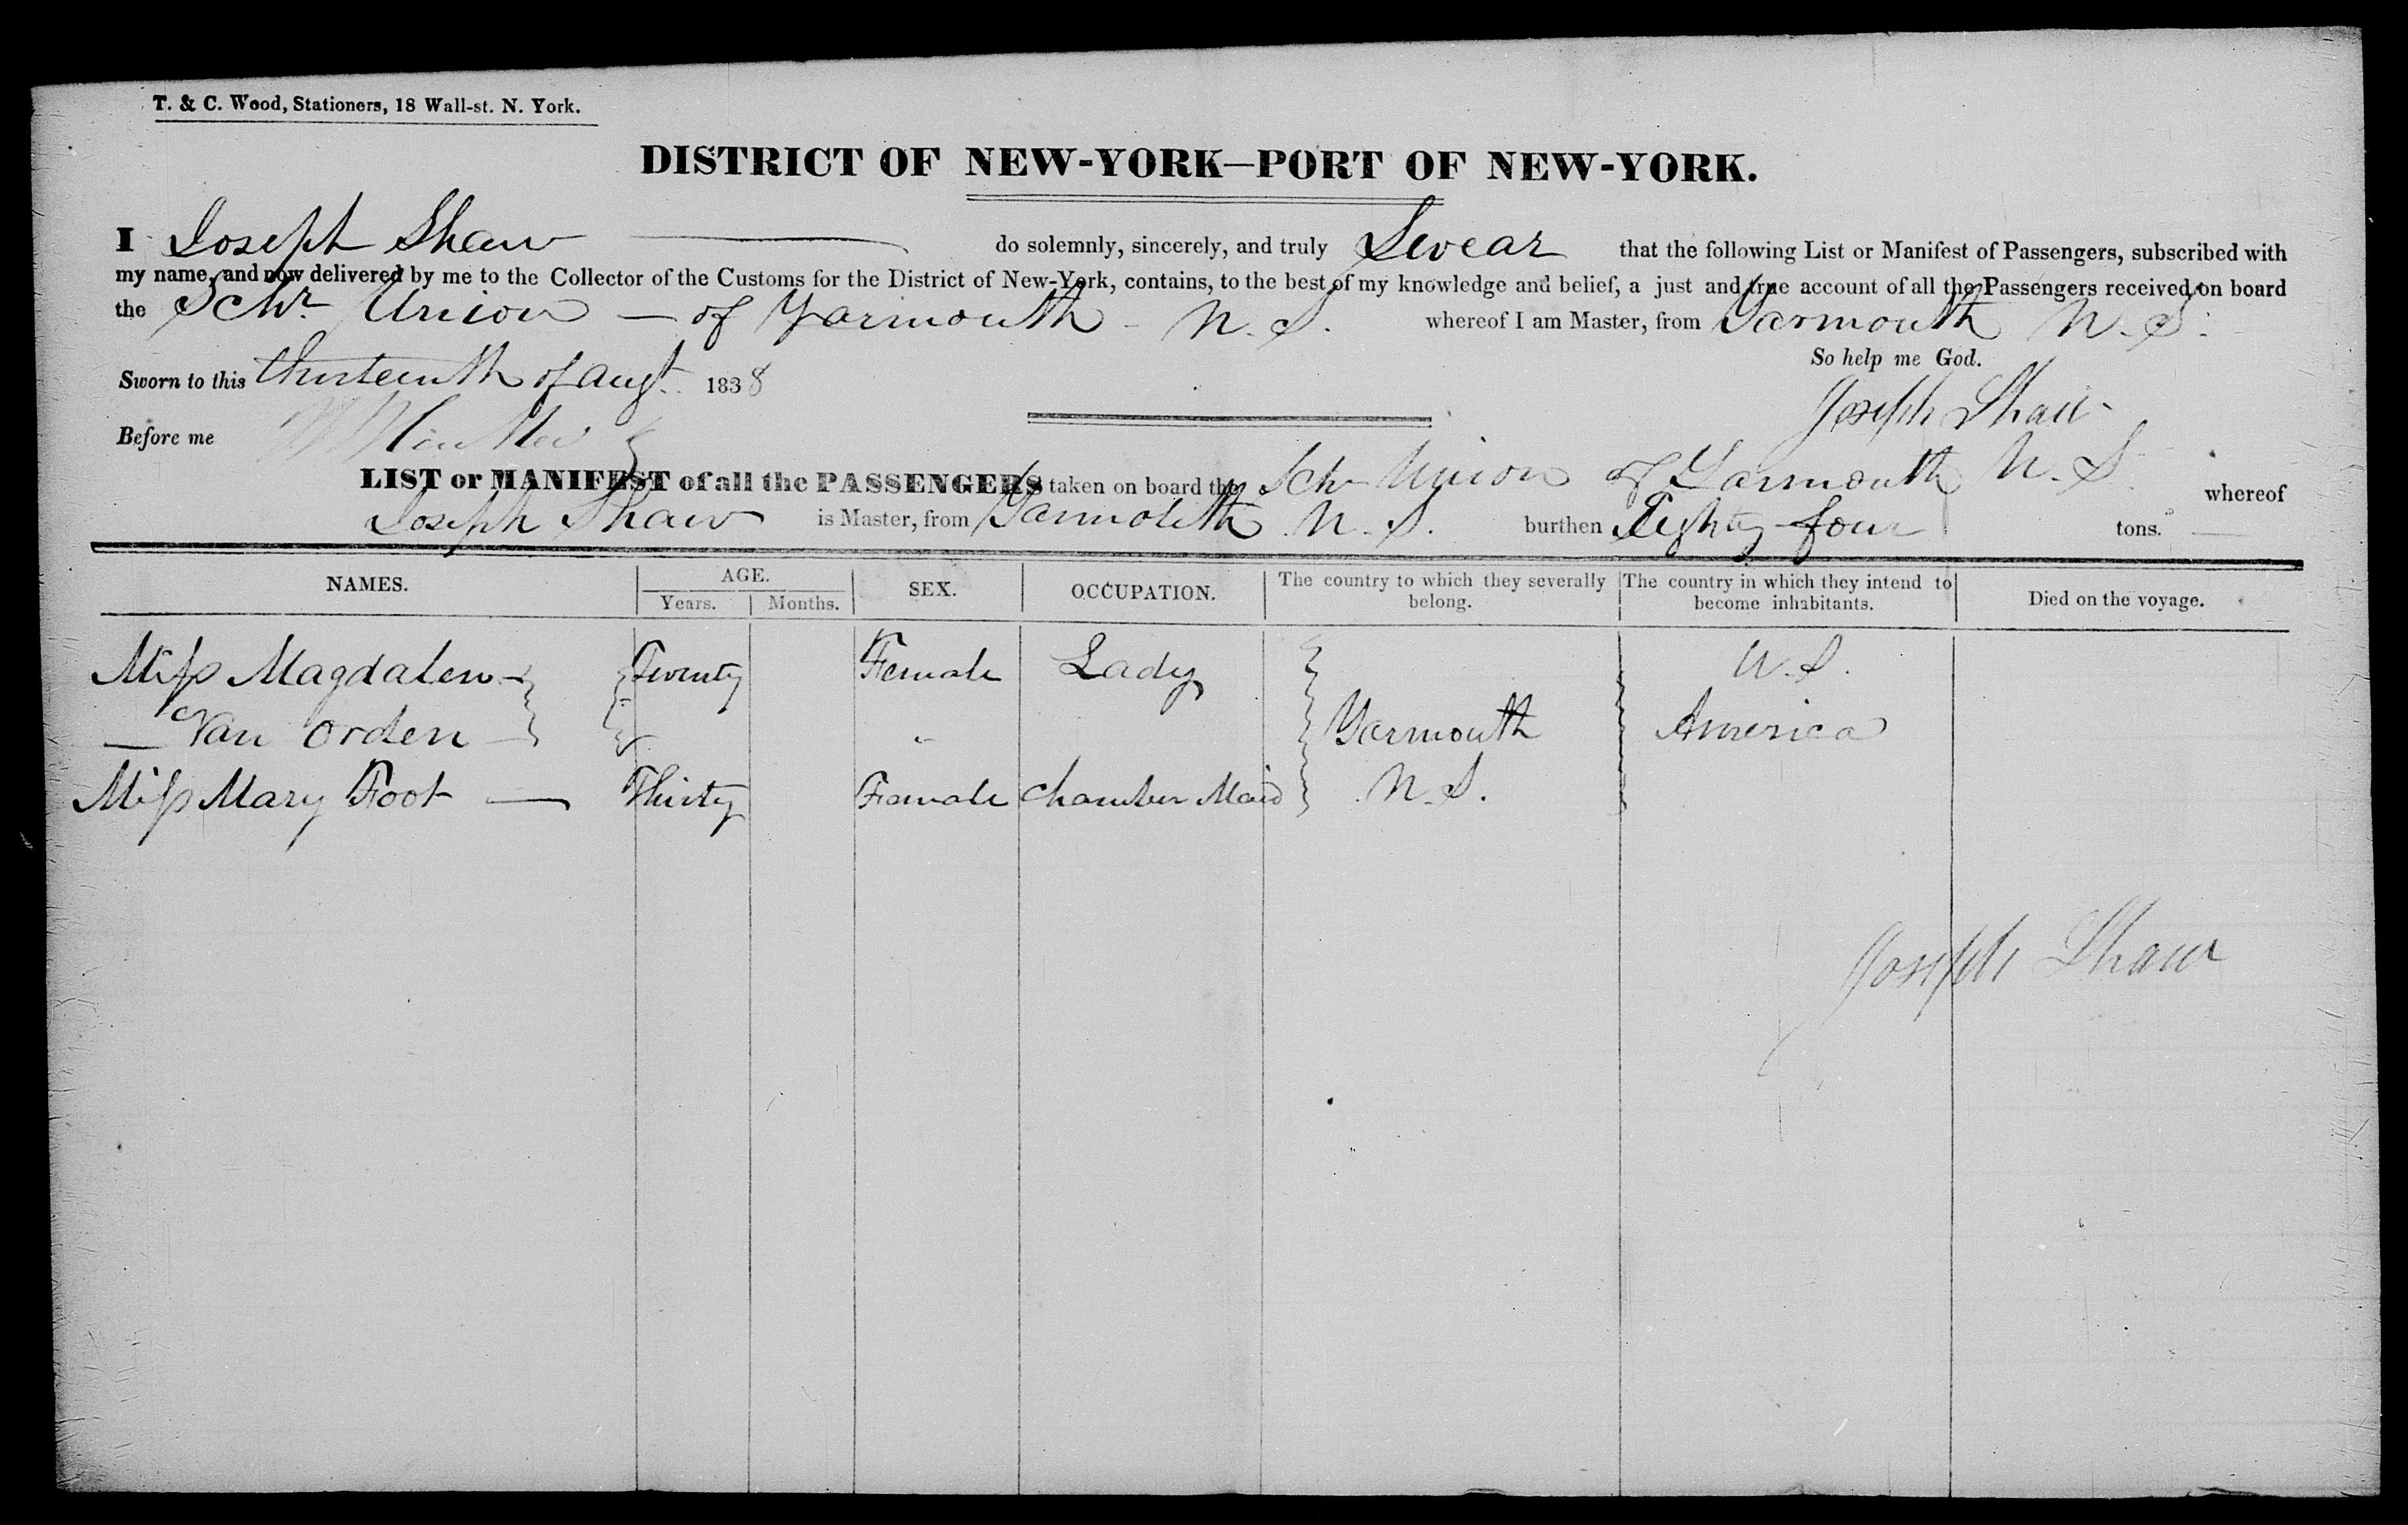 T. & C. Wood, Stationers, 18 Wall-st. N. York.
DISTRICT OF NEW-YORK—PORT OF NEW-YORK.
I Joseph Shaw — do solemnly, sincerely, and truly Swear that the following List or Manifest of Passengers, subscribed with
my name, and now delivered by me to the Collector of the Customs for the District of New-York, contains, to the best of my knowledge and belief, a just and true account of all the Passengers received on board
the Schr. Union — of Yarmouth - N. S. whereof I am Master, from Yarmouth N. S.
So help me God.
Sworn to this thirteenth of augt. 1838
Joseph Shaw
Before me
LIST or MANIFEST of all the PASSENGERS taken on board the Schr Union of Yarmouth N. S. whereof
Joseph Shaw is Master, from Yarmouth N. S. burthen Eighty four tons.
NAMES. AGE. Years. Months. SEX. OCCUPATION. The country to which they severally belong. The country in which they intend to become inhabitants. Died on the voyage.
Miss Magdalen Twenty Female Lady U. S.
— Van Orden — Yarmouth America
Miss Mary Foot — Thirty Female Chamber Maid N. S.
Joseph Shaw